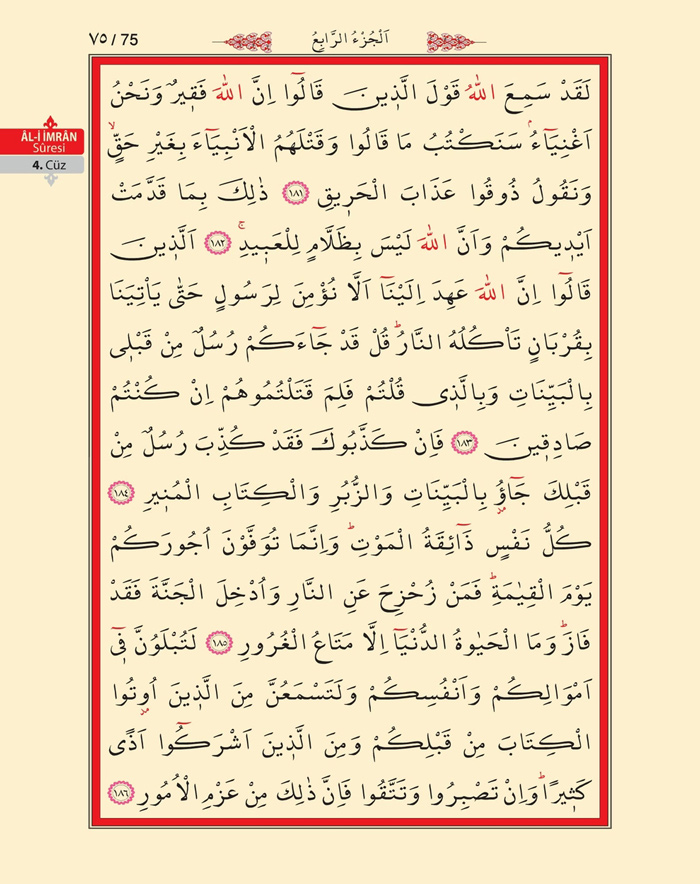 ٧٥ / 75
اَلْجُزْءُ الرَّابِعُ
ÂL-İ İMRÂN
Sûresi
4. Cüz
لَقَدْ سَمِعَ اللّٰهُ قَوْلَ الَّذ۪ينَ قَالُٓوا اِنَّ اللّٰهَ فَق۪يرٌ وَنَحْنُ
اَغْنِيَٓاءُۢ سَنَكْتُبُ مَا قَالُوا وَقَتْلَهُمُ الْاَنْبِيَٓاءَ بِغَيْرِ حَقٍّۙ
وَنَقُولُ ذُوقُوا عَذَابَ الْحَر۪يقِ ﴿١٨١﴾ ذٰلِكَ بِمَا قَدَّمَتْ
اَيْد۪يكُمْ وَاَنَّ اللّٰهَ لَيْسَ بِظَلَّامٍ لِلْعَب۪يدِۚ ﴿١٨٢﴾ اَلَّذ۪ينَ
قَالُٓوا اِنَّ اللّٰهَ عَهِدَ اِلَيْنَٓا اَلَّا نُؤْمِنَ لِرَسُولٍ حَتّٰى يَأْتِيَنَا
بِقُرْبَانٍ تَأْكُلُهُ النَّارُۜ قُلْ قَدْ جَٓاءَكُمْ رُسُلٌ مِنْ قَبْل۪ي
بِالْبَيِّنَاتِ وَبِالَّذ۪ي قُلْتُمْ فَلِمَ قَتَلْتُمُوهُمْ اِنْ كُنْتُمْ
صَادِق۪ينَ ﴿١٨٣﴾ فَاِنْ كَذَّبُوكَ فَقَدْ كُذِّبَ رُسُلٌ مِنْ
قَبْلِكَ جَٓاؤُ۫ بِالْبَيِّنَاتِ وَالزُّبُرِ وَالْكِتَابِ الْمُن۪يرِ ﴿١٨٤﴾
كُلُّ نَفْسٍ ذَٓائِقَةُ الْمَوْتِۜ وَاِنَّمَا تُوَفَّوْنَ اُجُورَكُمْ
يَوْمَ الْقِيٰمَةِۜ فَمَنْ زُحْزِحَ عَنِ النَّارِ وَاُدْخِلَ الْجَنَّةَ فَقَدْ
فَازَۜ وَمَا الْحَيٰوةُ الدُّنْيَٓا اِلَّا مَتَاعُ الْغُرُورِ ﴿١٨٥﴾ لَتُبْلَوُنَّ ف۪ٓي
اَمْوَالِكُمْ وَاَنْفُسِكُمْ وَلَتَسْمَعُنَّ مِنَ الَّذ۪ينَ اُو۫تُوا
الْكِتَابَ مِنْ قَبْلِكُمْ وَمِنَ الَّذ۪ينَ اَشْرَكُٓوا اَذًى
كَث۪يرًاۜ وَاِنْ تَصْبِرُوا وَتَتَّقُوا فَاِنَّ ذٰلِكَ مِنْ عَزْمِ الْاُمُورِ ﴿١٨٦﴾